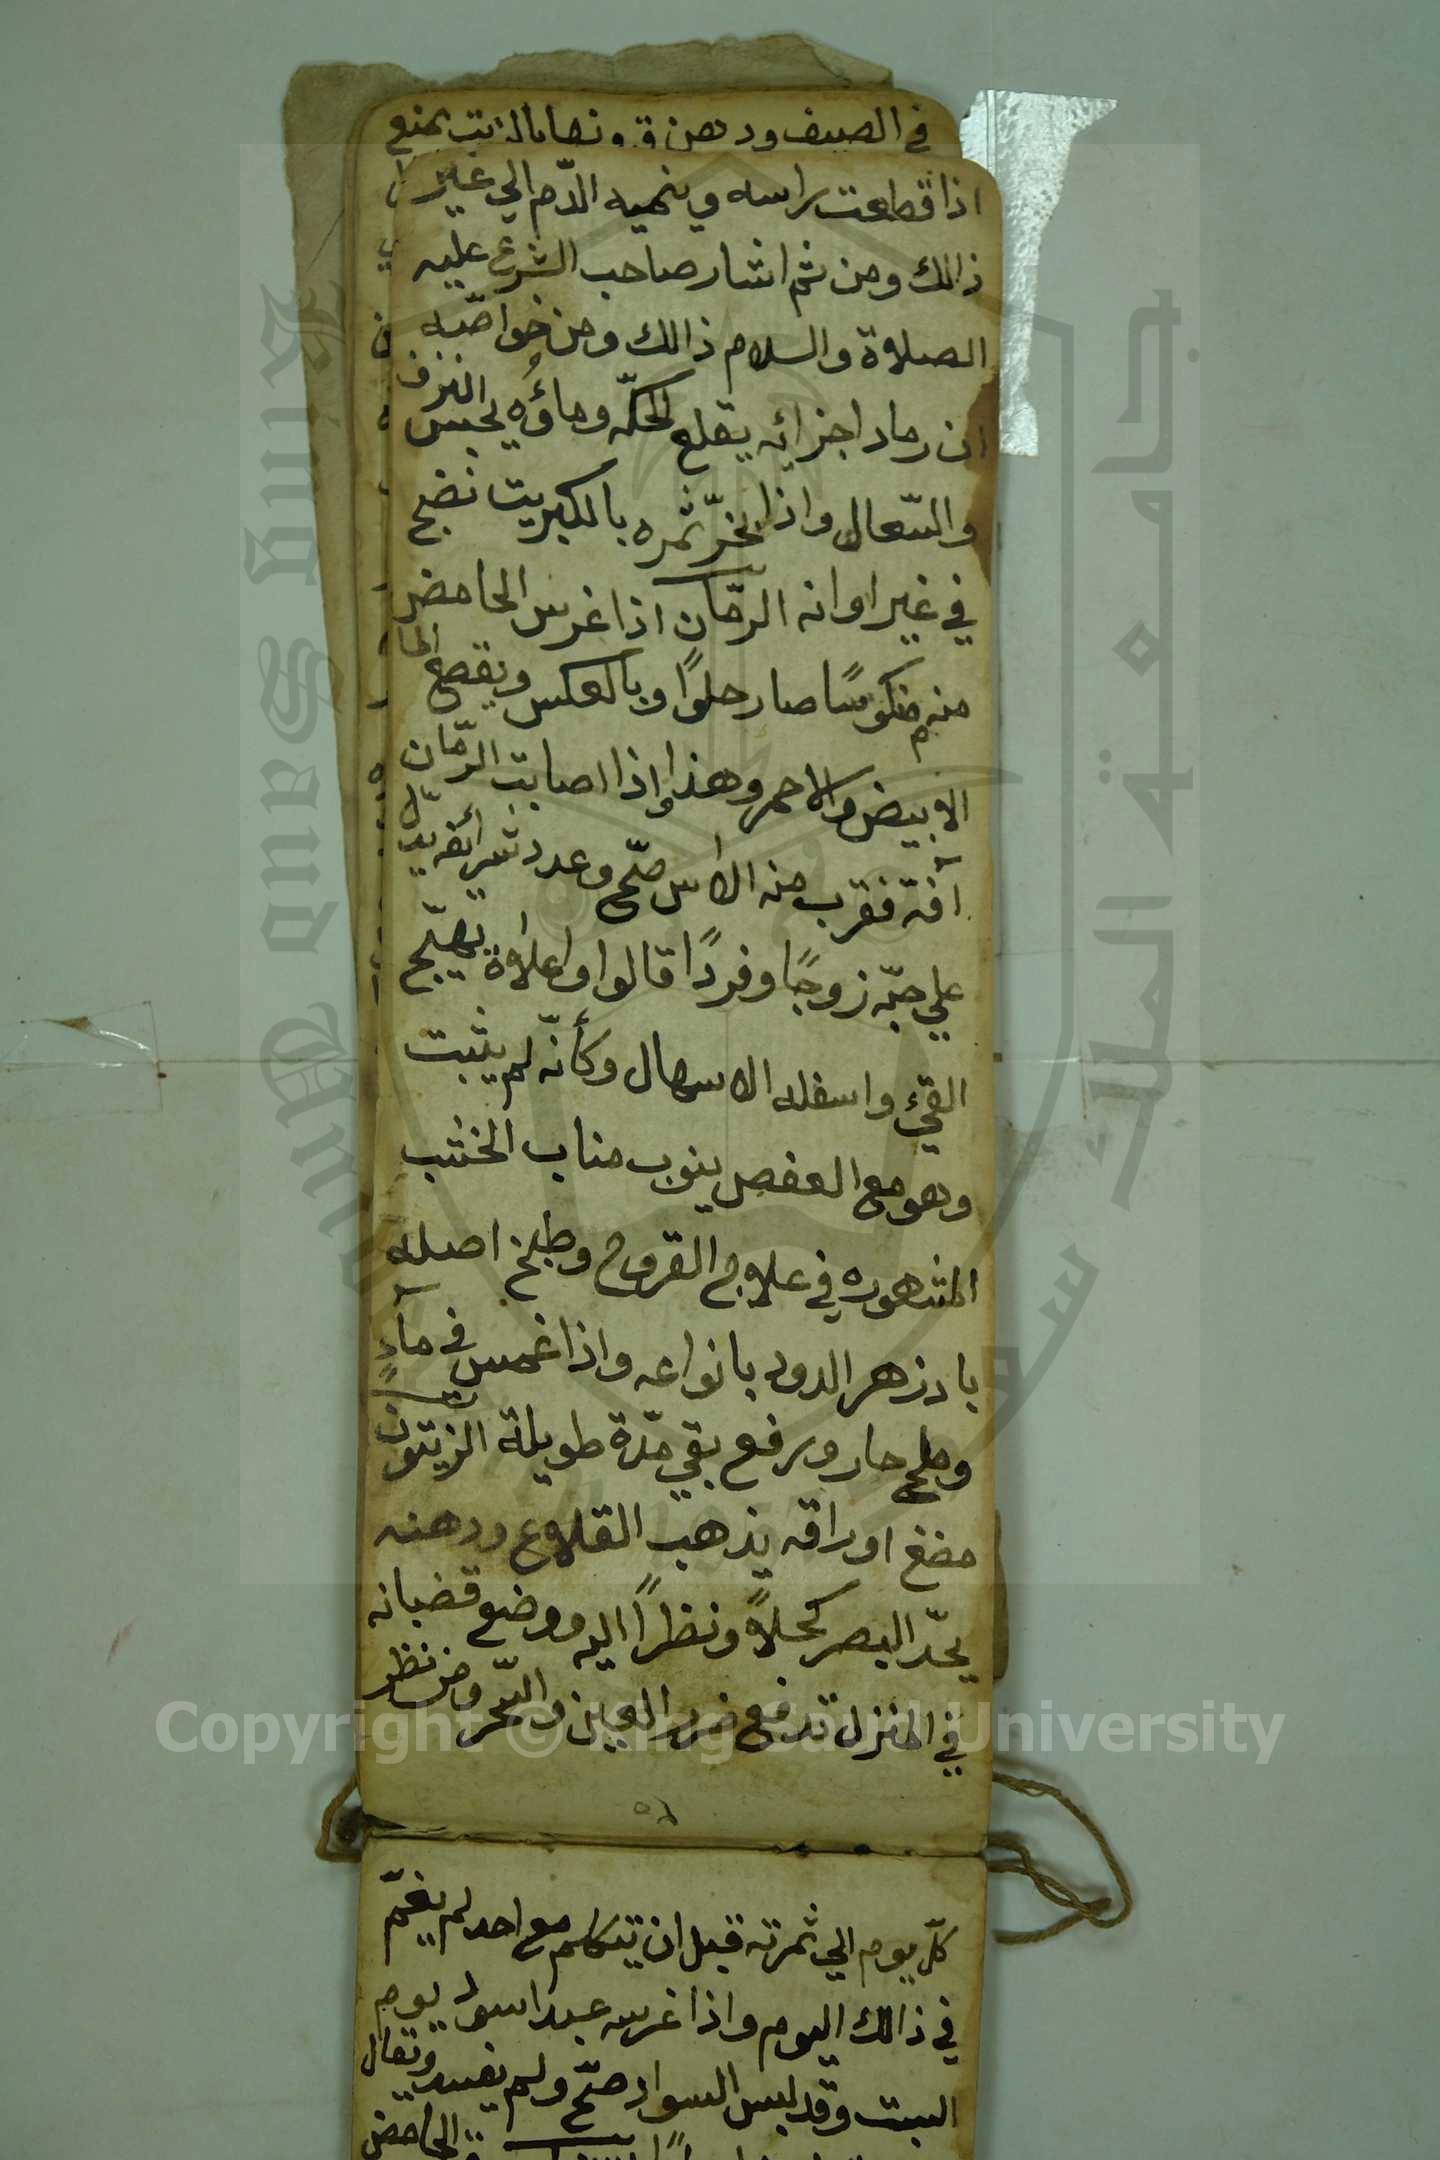 في الصيف ودهن قرونها بالزيت يمنع
اذا قطعت راسه وينهيه الدّم الي غير
ذالك ومن ثم اشار صاحب الشرع عليه
الصلاة والسلام ذالك ومن خواصّه
ان رماد اجزائه يقلع الحكّه وماؤه يحبس النزف
والسّعال واذا بخّر ثمره بالكبريت نضج
في غير اوانه الرّمّان اذا غرس الحامض
منه منكوسًا صار حلوًا وبالعكس ويقصع الما
الابيض والاحمر وهذا واذا اصابت الرّمّان
آفة فقرب منه الاس صحّ وعدد شرائفه يدلّ
علي حبّه زوجًا وفردًا قالوا واعلاه يهيّج
القيء واسفله الاسهال وكأنّه لم يثبت
وهو مع العفص ينوب مناب الخشب
المشهوره في علاج القروح وطبخ اصله
بادزهر الدود بانواعه واذا غمس في مآءٍ
وملح حار ورفع بقي مدّة طويلة الزيتون
مضغ اوراقه يذهب القلاع ودهنه
يحدّ البصر كحلاً ونظراً اليه ووضع قضبانه
في المنزل تدفع ضرر العين والسّحر ومن نظر
كلّ يوم الي ثمرته قبل ان يتكلم مع احد لم يغتمّ
في ذالك اليوم واذا غرسه عبد اسود يوم
السبت وقد لبس السواد صحّ ولم يفسد ويقال
الحامض
Copyright © King Saud University
King Saud University
جامعة الملك سعود